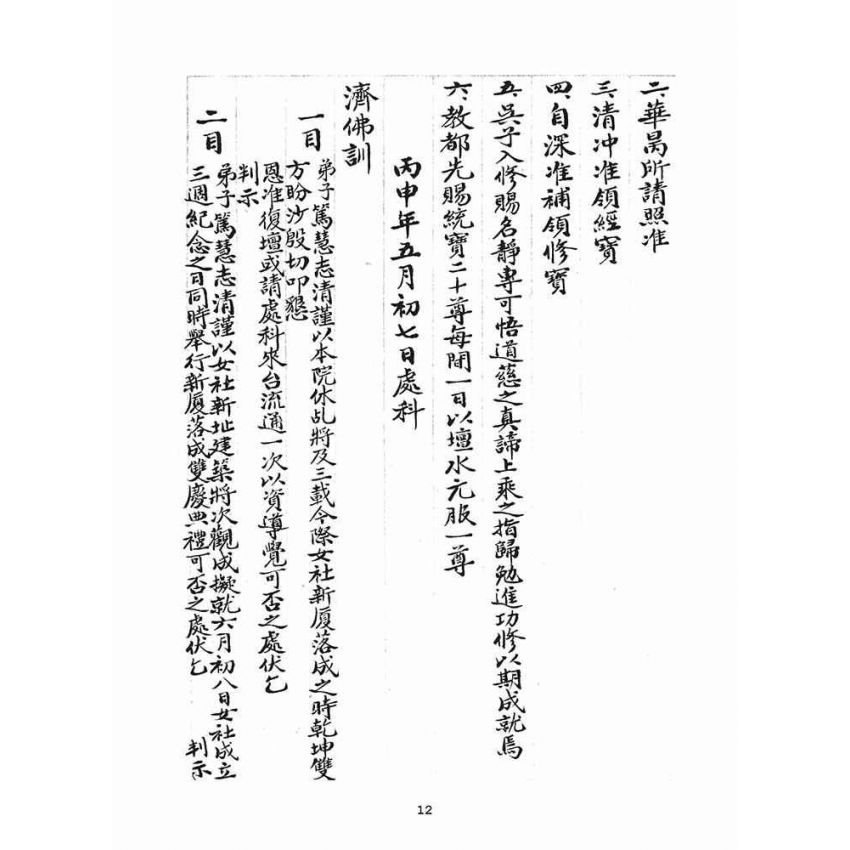 二、華昺所請照准
三、清冲准領經寶
四、自深准補領修寶
五、吳子入修賜名靜專可悟道慈之真諦上乘之指歸勉進功修以期成就焉
六、教都先賜統寶二十尊每間一日以壇水元服一尊
丙申年五月初七日處科
濟佛訓
一目 弟子篤慧志清謹以本院休乩將及三載今際女社新厦落成之時乾坤雙
方盼沙殷切叩懇
恩准復壇或請處科來台流通一次以資導覺可否之處伏乞
判示
二目 弟子篤慧志清謹以女社新址建築將次觀成擬就六月初八日女社成立
三週紀念之日同時舉行新厦落成雙慶典禮可否之處伏乞 判示
12